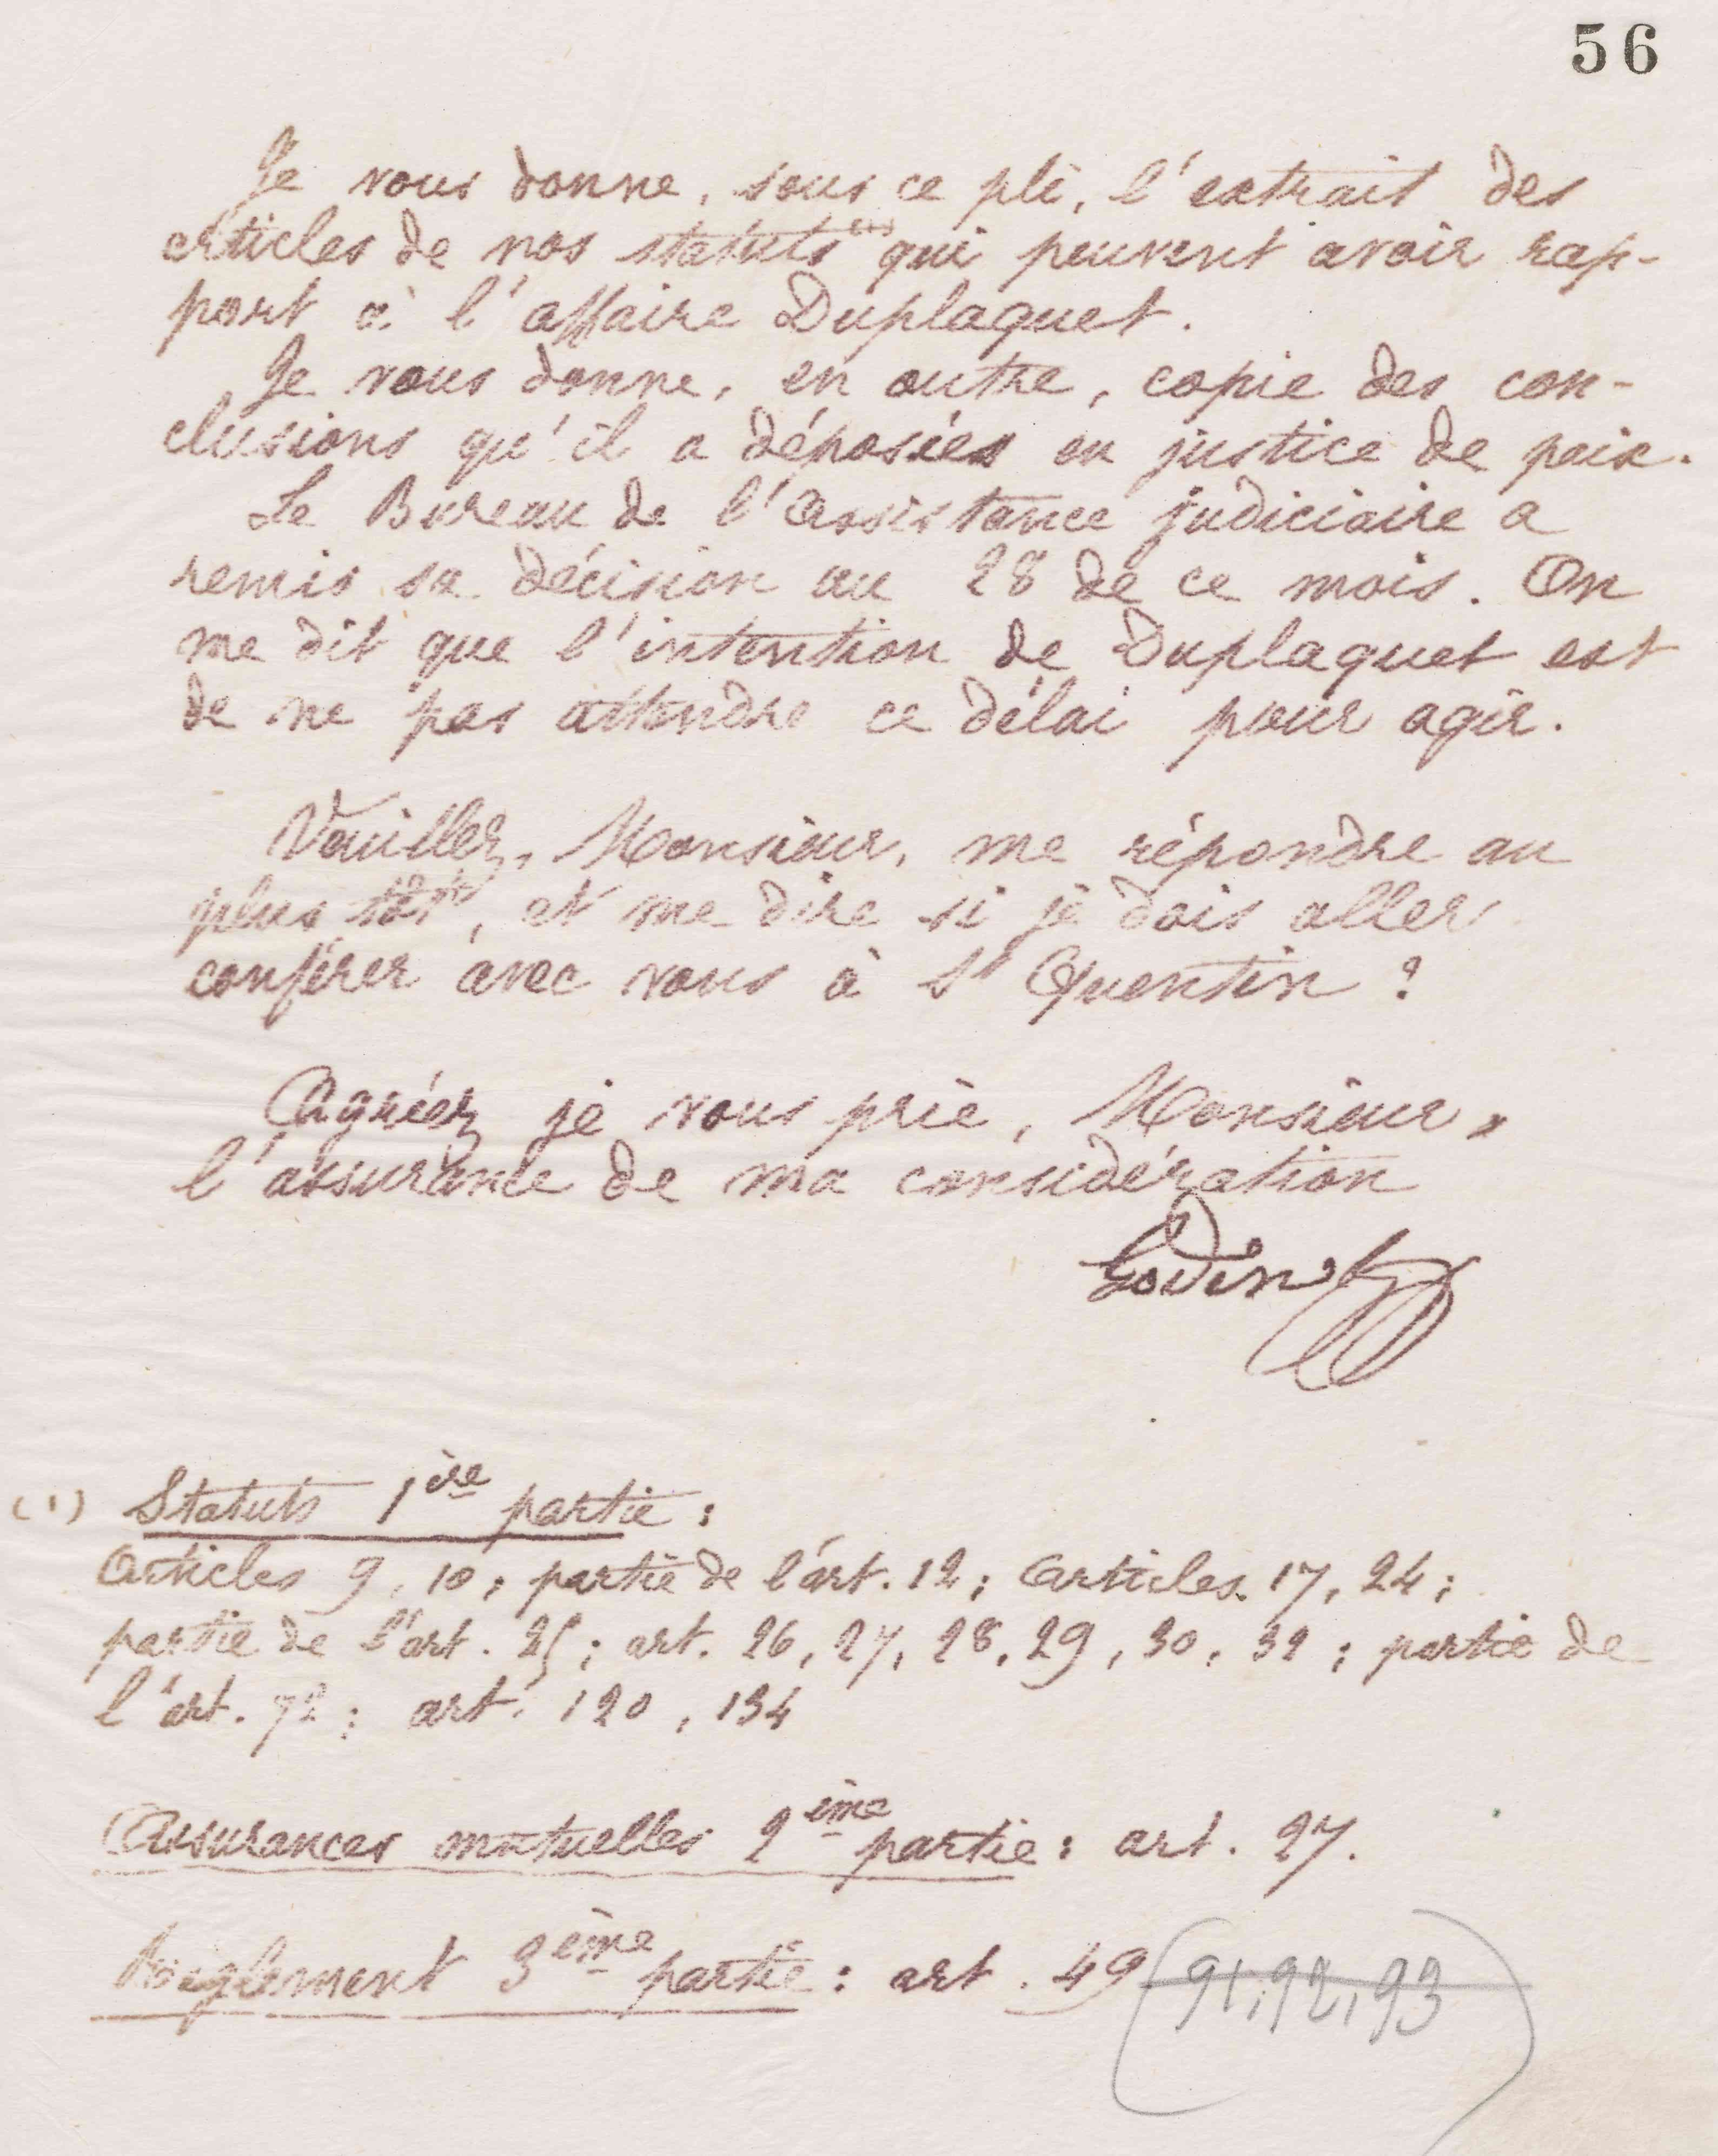 56
Je vous donne, sous ce pli, l'extrait des
articles de nos statuts (1) qui peuvent avoir rap-
port à l'affaire Duplaquet.
Je vous donne, en outre, copie des con-
clusions qu'il a déposées en justice de paix.
Le Bureau de l'assistance judiciaire a
remis sa décision au 28 de ce mois. On
me dit que l'intention de Duplaquet est
de ne pas attendre ce délai pour agir.
Veuillez, Monsieur, me répondre au
plus tôt, et me dire si je dois aller
conférer avec vous à St Quentin ?
Agréez je vous prie, Monsieur,
l'assurance de ma considération
Godin
(1) Statuts 1ère partie :
Articles 9, 10 ; partie de l'art. 12 ; articles 17, 24 ;
partie de l'art. 25 ; art. 26, 27, 28, 29, 30, 32 ; partie de
l'art. 72 ; art. 120, 134
Assurances mutuelles 2ème partie : art. 27.
Règlement 3ème partie : art. 49 (91, 92, 93)